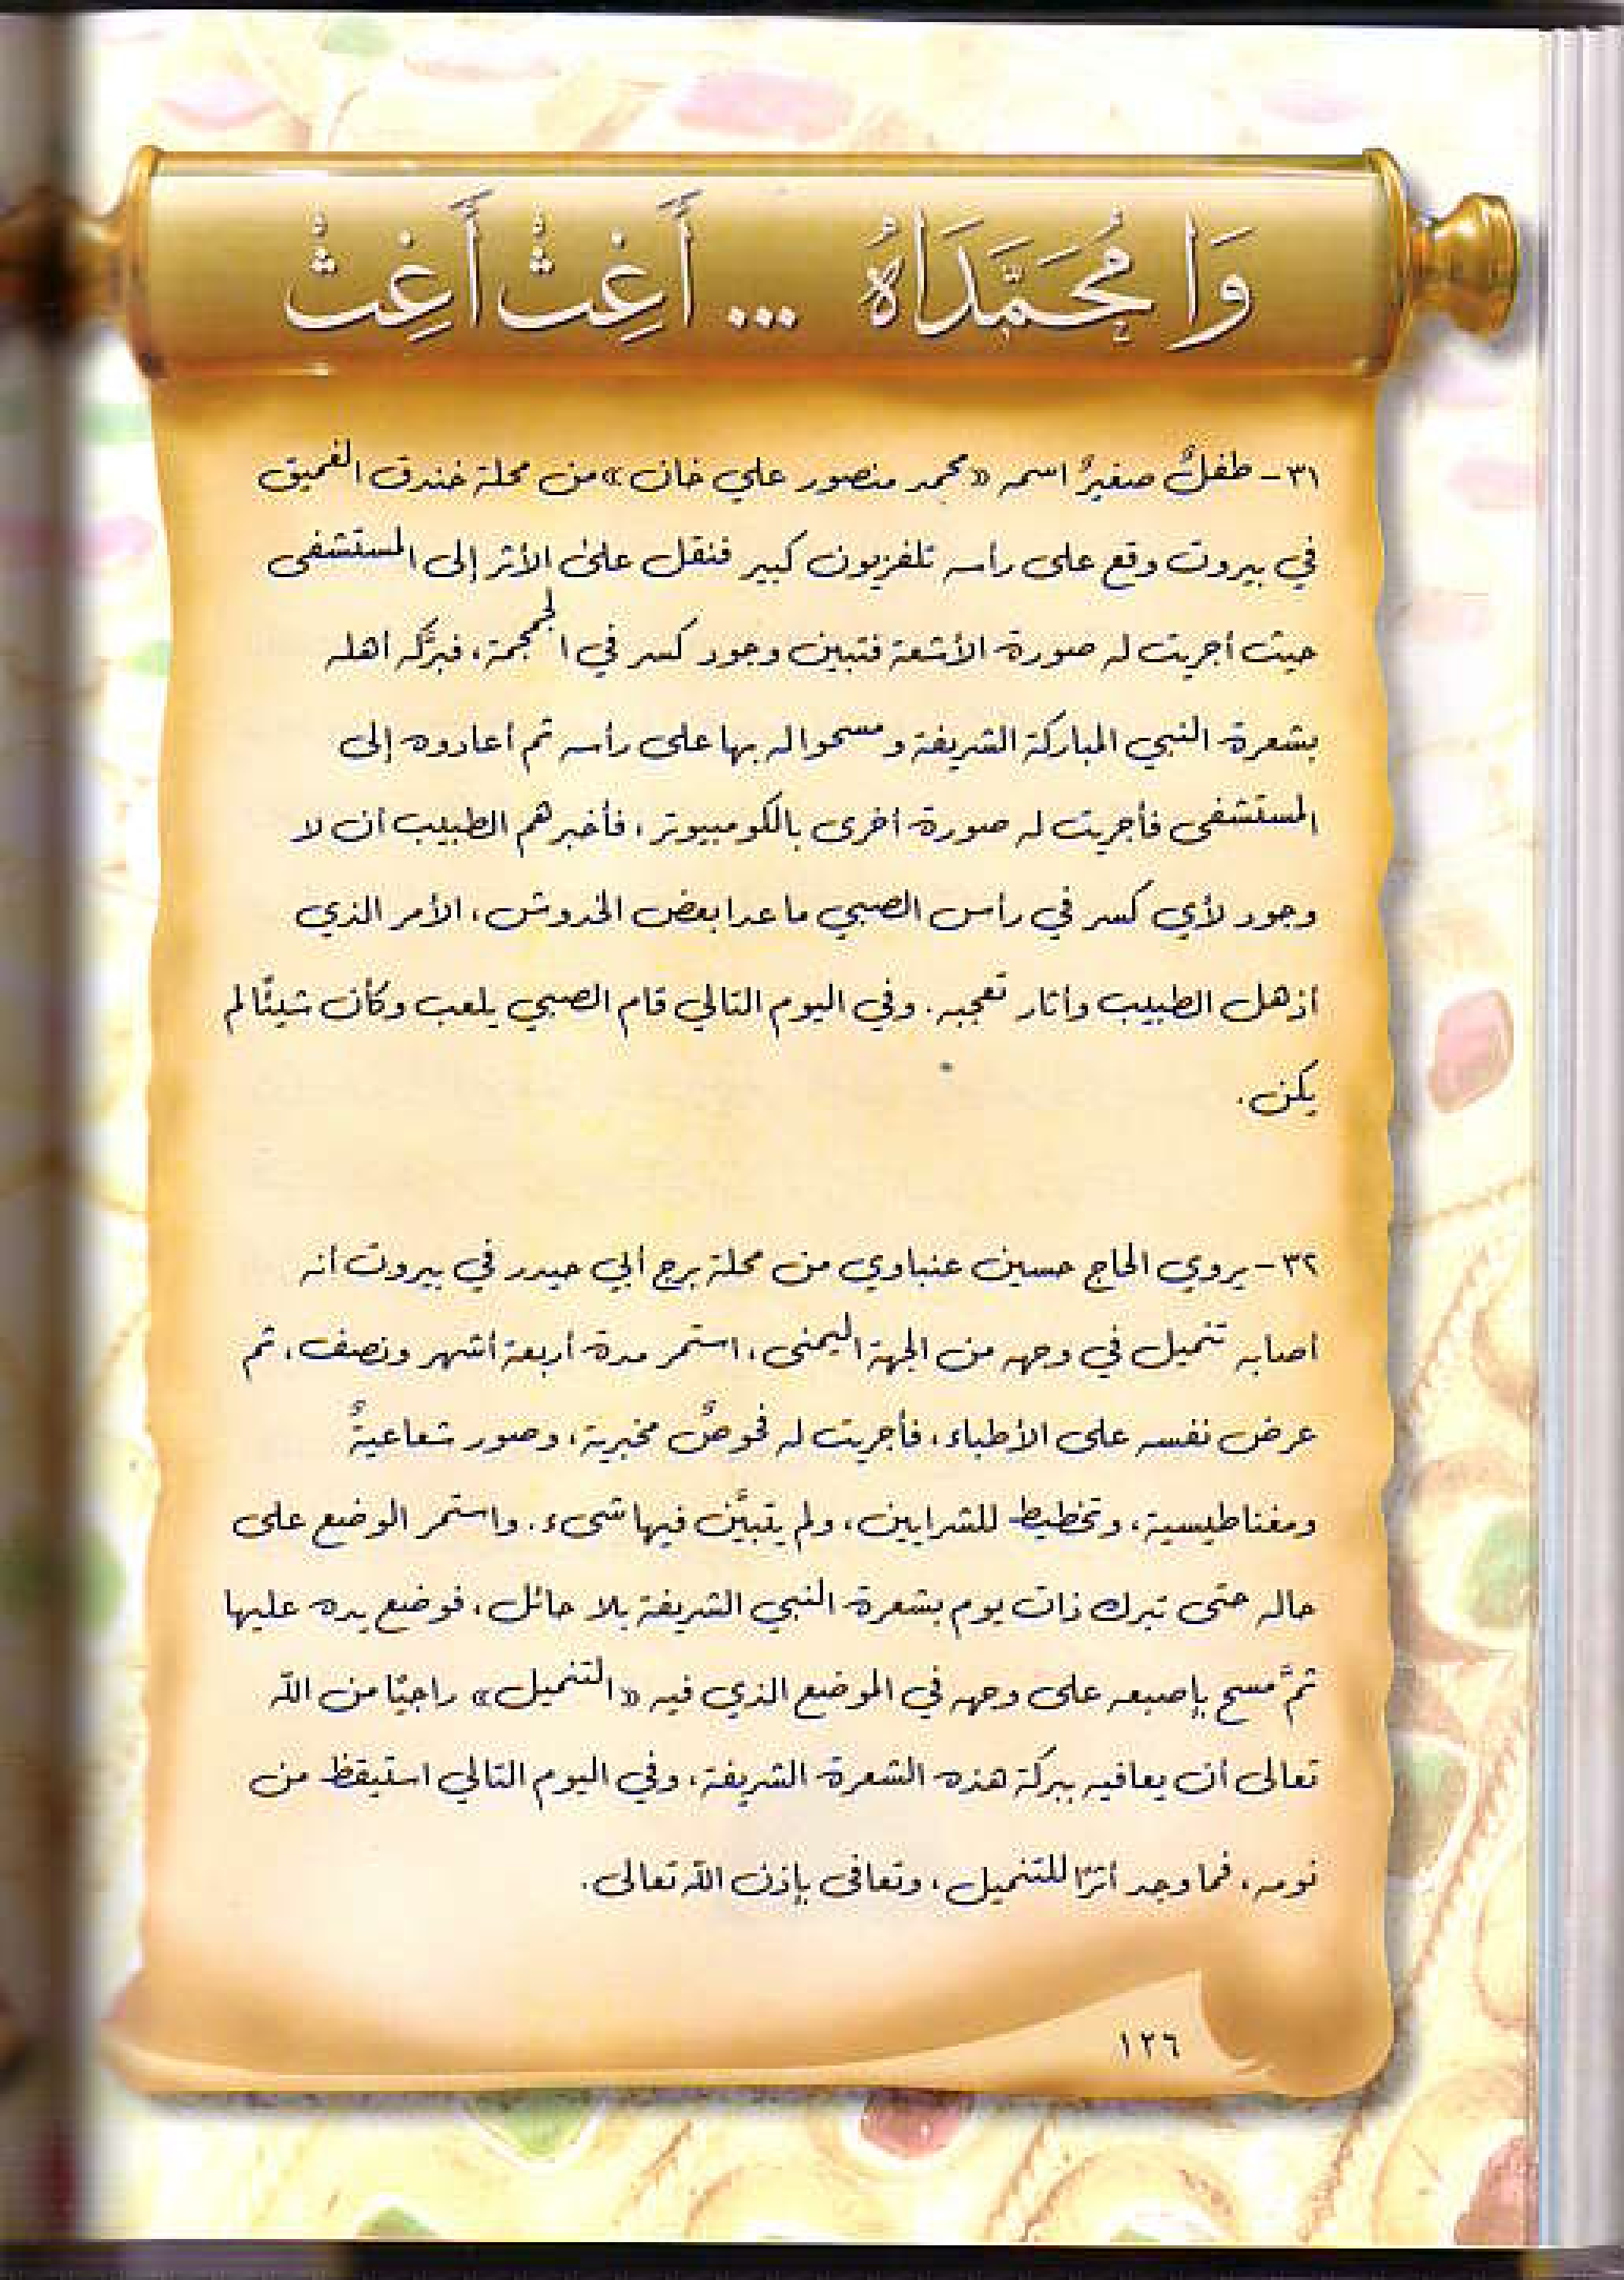 وَا مُحَمَّدَاهُ ... أَغِثْ أَغِثْ
٣١- طفلٌ صغيرٌ اسمه «محمد منصور علي خان» من محلة خندق الغميق
في بيروت وقع على رأسه تلفزيون كبير فنقل على الأثر إلى المستشفى
حيث أجريت له صورة الأشعة فتبين وجود كسر في الجمجمة، فبرَّكه أهله
بشعرة النبي المباركة الشريفة ومسحوا له بها على رأسه ثم أعادوه إلى
المستشفى فأجريت له صورة أخرى بالكومبيوتر، فأخبرهم الطبيب أن لا
وجود لأي كسر في رأس الصبي ما عدا بعض الخدوش، الأمر الذي
أذهل الطبيب وأثار تعجبه. وفي اليوم التالي قام الصبي يلعب وكأن شيئًا لم
يكن.
٣٢- يروي الحاج حسين عنباوي من محلة برج أبي حيدر في بيروت أنه
أصابه تنميل في وجهه من الجهة اليمنى، استمر مدة أربعة أشهر ونصف، ثم
عرض نفسه على الأطباء، فأجريت له فحوصٌ مخبرية، وصور شعاعيةٌ
ومغناطيسية، وتخطيط للشرايين، ولم يتبيَّن فيها شىء. واستمر الوضع على
حاله حتى تبرك ذات يوم بشعرة النبي الشريفة بلا حائل، فوضع يده عليها
ثمَّ مسح بإصبعه على وجهه في الموضع الذي فيه «التنميل» راجيًا من الله
تعالى أن يعافيه ببركة هذه الشعرة الشريفة، وفي اليوم التالي استيقظ من
نومه، فما وجد أثرًا للتنميل، وتعافى بإذن الله تعالى.
١٢٦